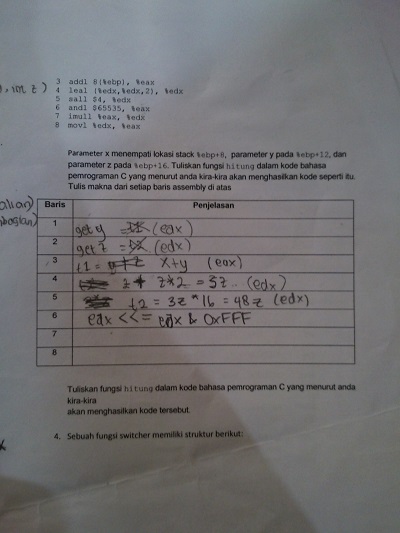 , int z)
3 addl 8(%ebp), %eax
4 leal (%edx,%edx,2), %edx
5 sall $4, %edx
6 andl $65535, %eax
7 imull %eax, %edx
8 movl %edx, %eax
Parameter x menempati lokasi stack %ebp+8, parameter y pada %ebp+12, dan
parameter z pada %ebp+16. Tuliskan fungsi hitung dalam kode bahasa
pemrograman C yang menurut anda kira-kira akan menghasilkan kode seperti itu.
Tulis makna dari setiap baris assembly di atas
Baris Penjelasan
1 get y = (eax)
2 get z = (edx)
3 t1 = x+y (eax)
4 z + z*2 = 3z (edx)
5 t2 = 3z * 16 = 48z (edx)
6 <<= & 0xFFF
7
8
Tuliskan fungsi hitung dalam kode bahasa pemrograman C yang menurut anda
kira-kira
akan menghasilkan kode tersebut.
4. Sebuah fungsi switcher memiliki struktur berikut: